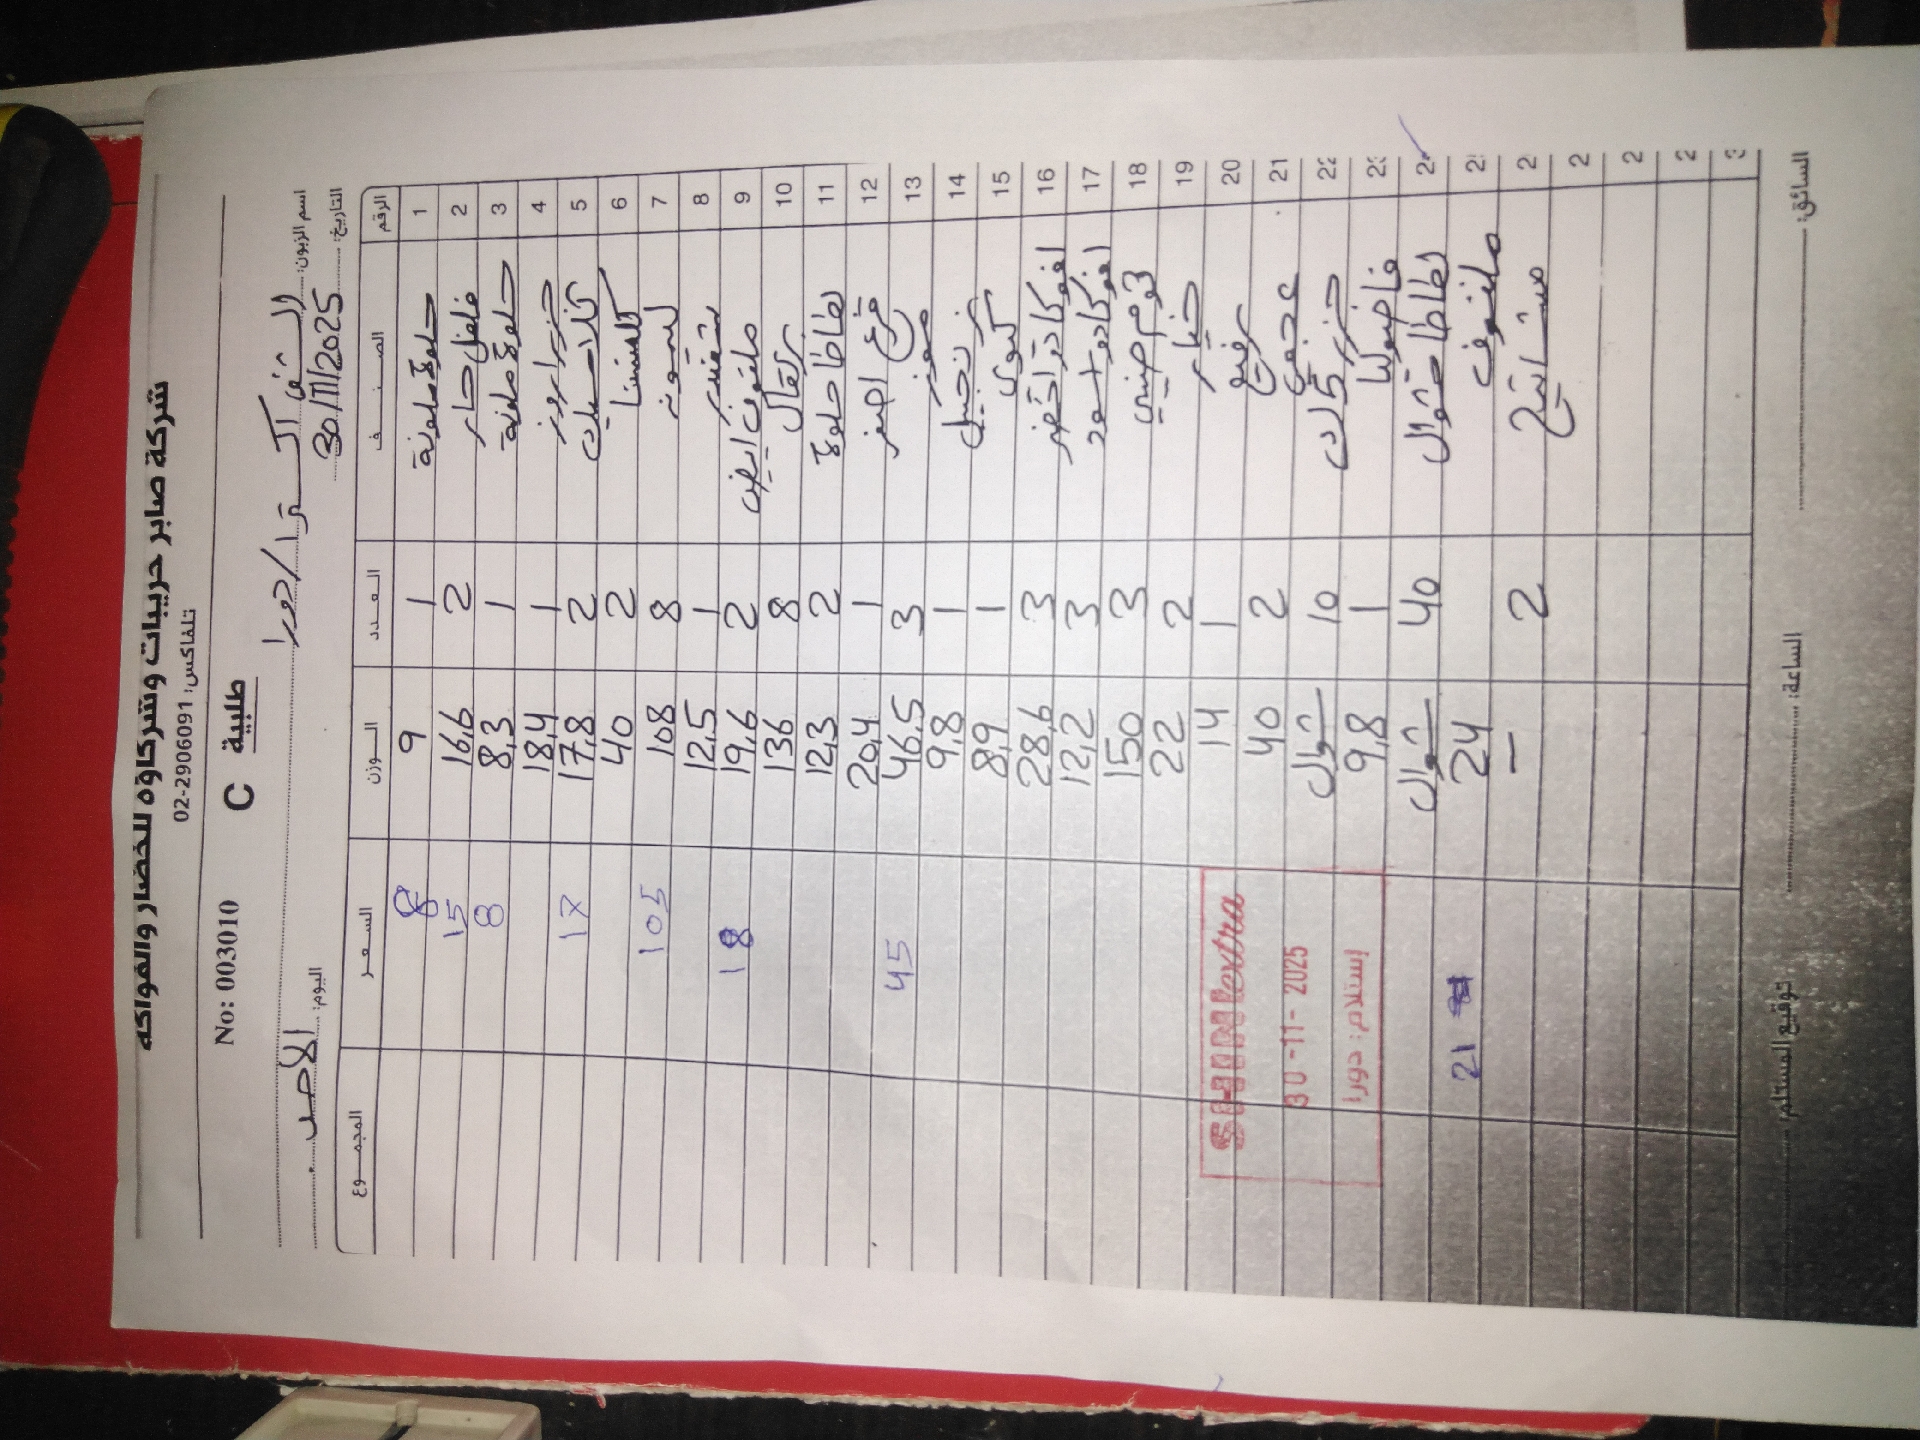 شركة صابر حريبات وشركاؤه للخضار والفواكه
تلفاكس: 02-2906091
No: 003010 C طلبية
اسم الزبون: الشني اكسترا/دورا
التاريخ: 30/11/2025 اليوم: الأحد
الرقم الصنف العدد الوزن السعر المجموع
1 حلوة ملونة 1 9 8
2 فلفل حار 2 16,6 15
3 حلوة ملونة 1 8,3 8
4 جزر اروز 1 18,4
5 2 17,8 17
6 كلمنتينا 2 40
7 ليمون 8 108 105
8 1 12,5
9 ملفوف ابيض 2 19,6 18
10 برتقال 8 136
11 بطاطا حلوة 2 12,3
12 قرع اصفر 1 20,4
13 موز 3 46,5 45
14 زنجبيل 1 9,8
15 كيوي 1 8,9
16 افوكادو اخضر 3 28,6
17 افوكادو اسود 3 12,2
18 ثوم صيني 3 150
19 خيار 2 22
20 رفيع 1 14
21 عجمي 2 40
22 جزر 10 شوال
23 فاصوليا 1 9,8
2 بطاطا شوال 40 شوال
2 ملفوف 24 21
2 2 –
2
2
2
SHINI extra
30-11-2025
إستلام: دورا
السائق: الساعة: توقيع المستلم